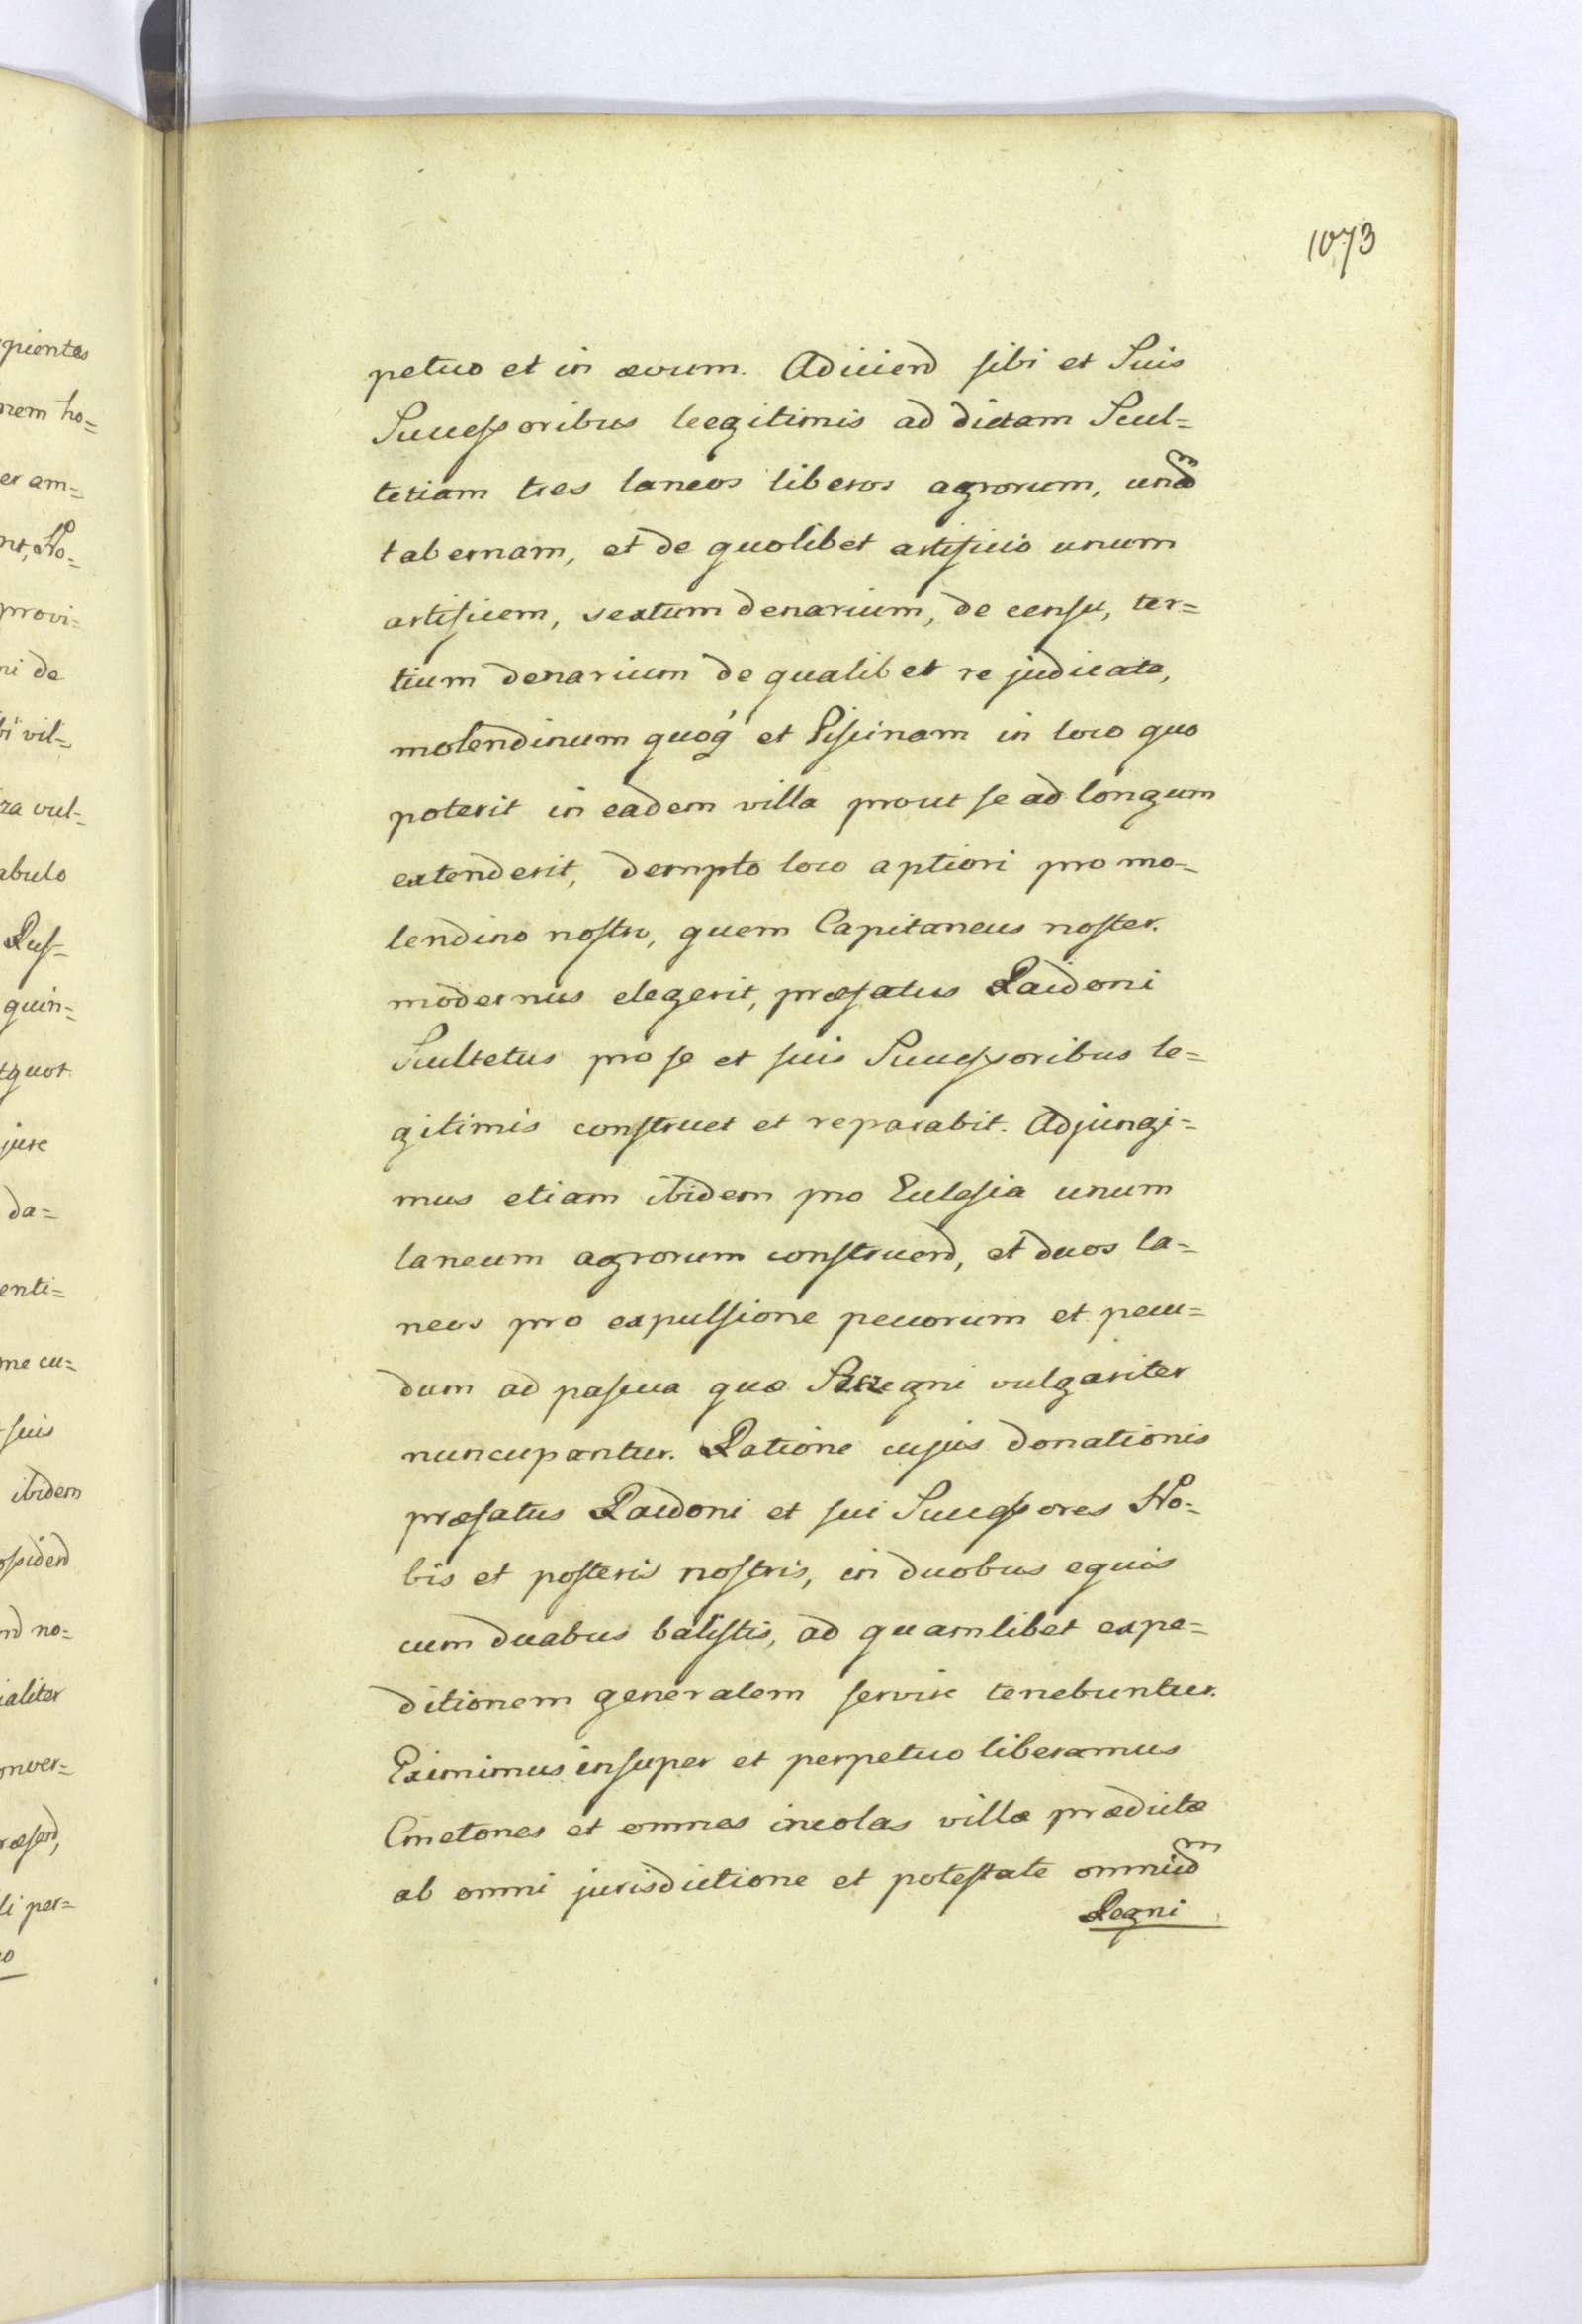 1073
petuo et in ævum. Adiicien͠d sibi et Suis
Successoribus legitimis ad dictam Scul=
tetiam tres laneos liberos agrorum, una͠m
tabernam, et de quolibet artificio unum
artificem, sextum denarium, de censu, ter=
tium denarium de qualibet re judicata,
molendinum quoq́ et Piscinam in loco quo
poterit in eadem villa prout se ad longum
extenderit, dempto loco aptiori pro mo=
lendino nostro, quem Capitaneus noster
modernus elegerit, præfatus Raidoni
Scultetus pro se et suis Successoribus le=
gitimis construet et reparabit. Adjungi=
mus etiam ibidem pro Ecclesia unum
laneum agrorum construend, et duos la=
neos pro expulsione pecorum et pecu=
dum ad pascua quæ vulgariter
nuncupantur. Ratione cujus donationis
præfatus Raidoni et sui Successores No=
bis et posteris nostris, in duobus equis
cum duabus balistis, ad quamlibet expe=
ditionem generalem servire tenebuntur.
Eximimus insuper et perpetuo liberamus
Cmetones et omnes incolas villæ prædictæ
ab omni jurisdictione et potestate omniu͠m
Regni
pientes
nem ho=
er am=
No=
provi=
ni de
bi vil=
za vul=
abulo
Rus=
quin=
tquot
jure
da=
enti=
me cu=
suis
ibidem
ossidend
nd no=
ialiter
onver=
ræsend,
li per=